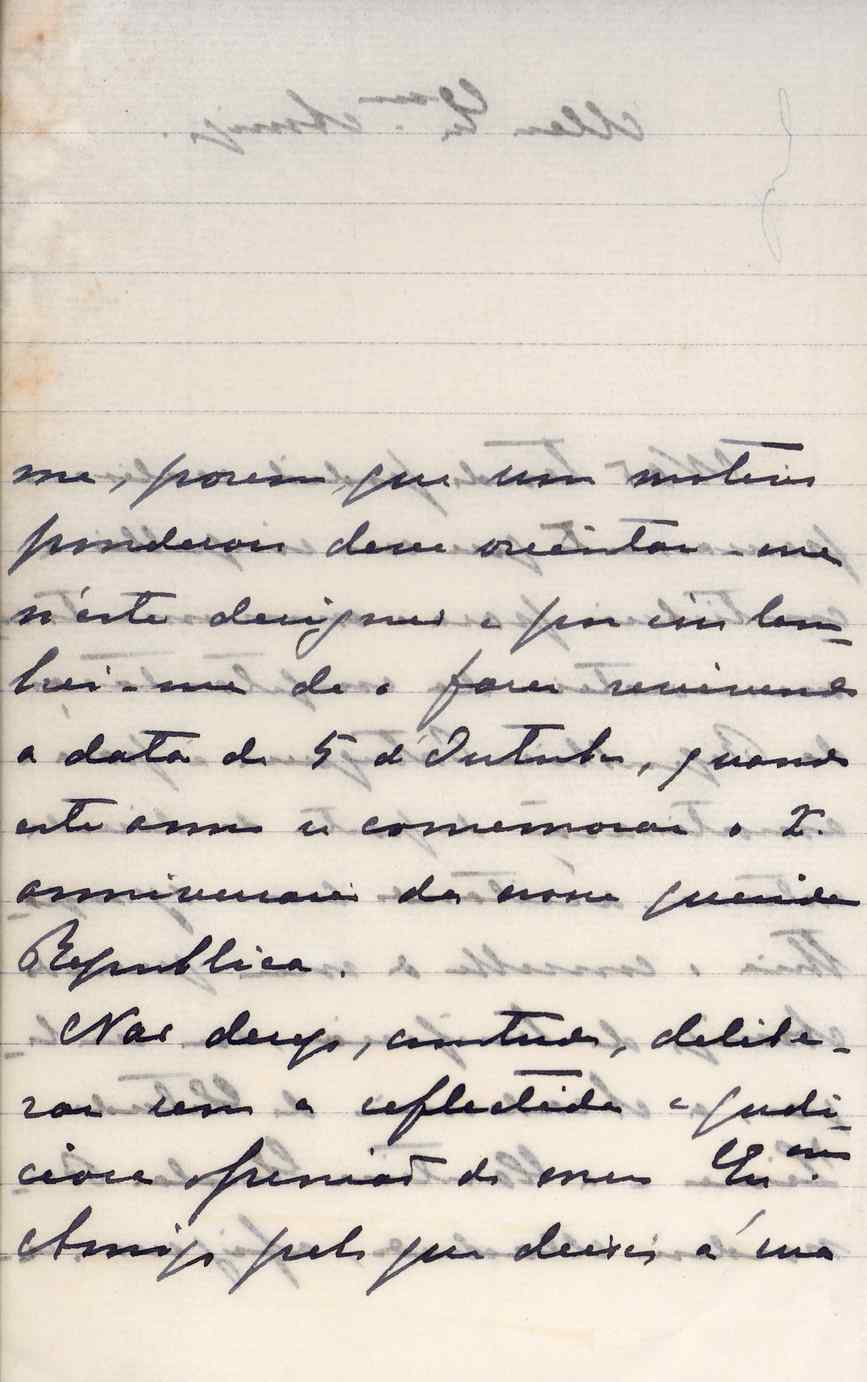 me, porem, que um motivo
ponderoso deve orientar-me
n'este designio e por isso lem-
brei-me de o fazer revivendo
a data de 5 d'Outubro, quando
este anno se comemorar o X.
anniversario da nossa querida
Republica.
Não desejo, comtudo, delibe-
rar sem a reflectida e judi-
ciosa opinião do meu Ex.mo
Amigo pelo que deixo á sua